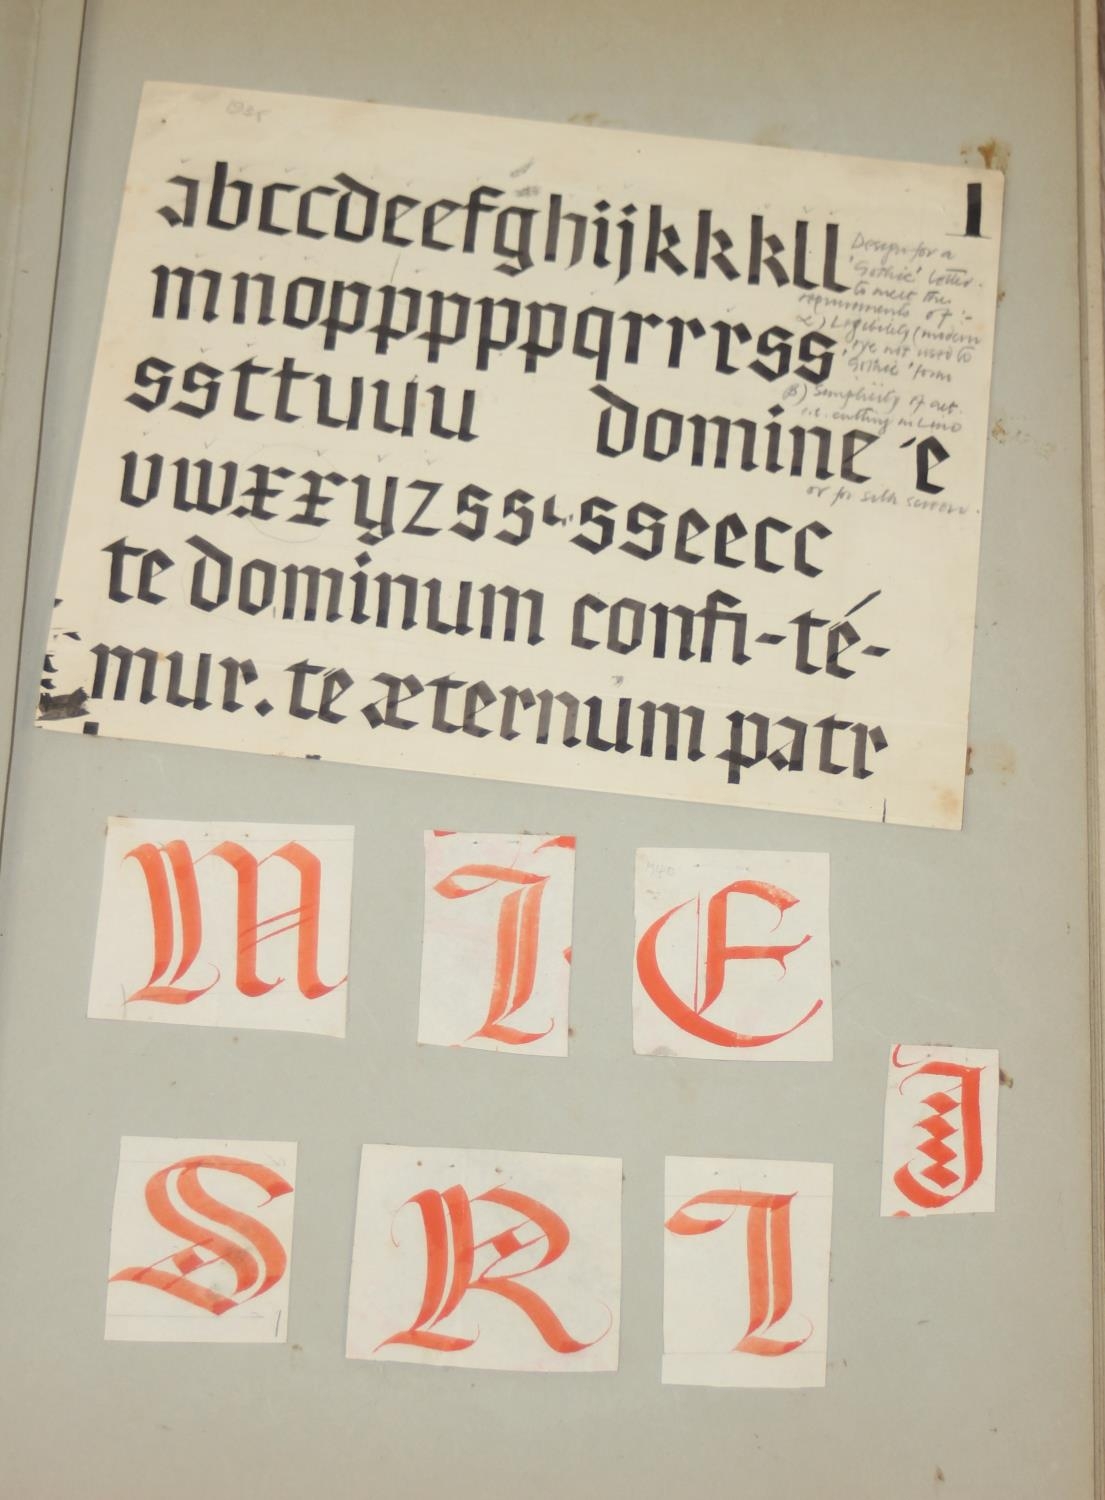 1935
1
abccdeefghijkkkll
Design for a
'Gothic' letter.
to meet the
requirements of :-
α) Legibility (modern
eye not used to
'Gothic' form
β) Simplicity of cut.
i.e. cutting in Lino
or for silk screen.
mnoppppppqrrrrss
ssttuuu domine 'e
vwxxyzss sseecc
te dominum confi-té-
mur. te æternum patr
M I E
J
S R I